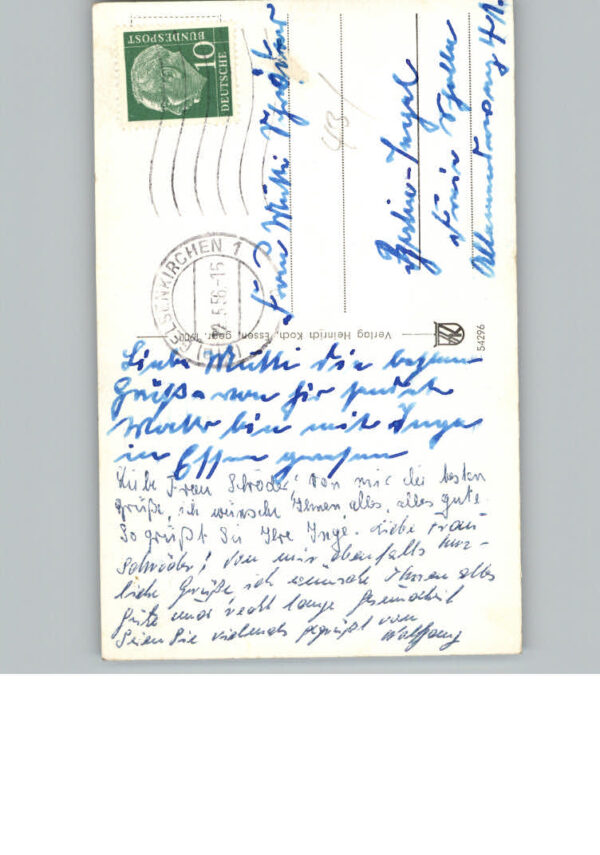 DEUTSCHE
BUNDESPOST
10
GELSENKIRCHEN 1
5.58-15
Verlag Heinrich Koch, Essen, gegr. 1900
54296
43/
Frau
Mutti Schröder
Berlin-Tegel
Liebe Mutti die besten
Grüße von hir sendet
Walter bin mit Inge
in Essen gewesen
Liebe Frau Schröder! Von mir die besten
Grüße, ich wünsche Ihnen alles, alles gute.
So grüßt Sie Ihre Inge. Liebe Frau
Schröder! Von mir ebenfalls herz-
liche Grüße ich wünsche Ihnen alles
Gute und recht lange Gesundheit
Seien Sie vielmals gegrüßt von
Wolfgang